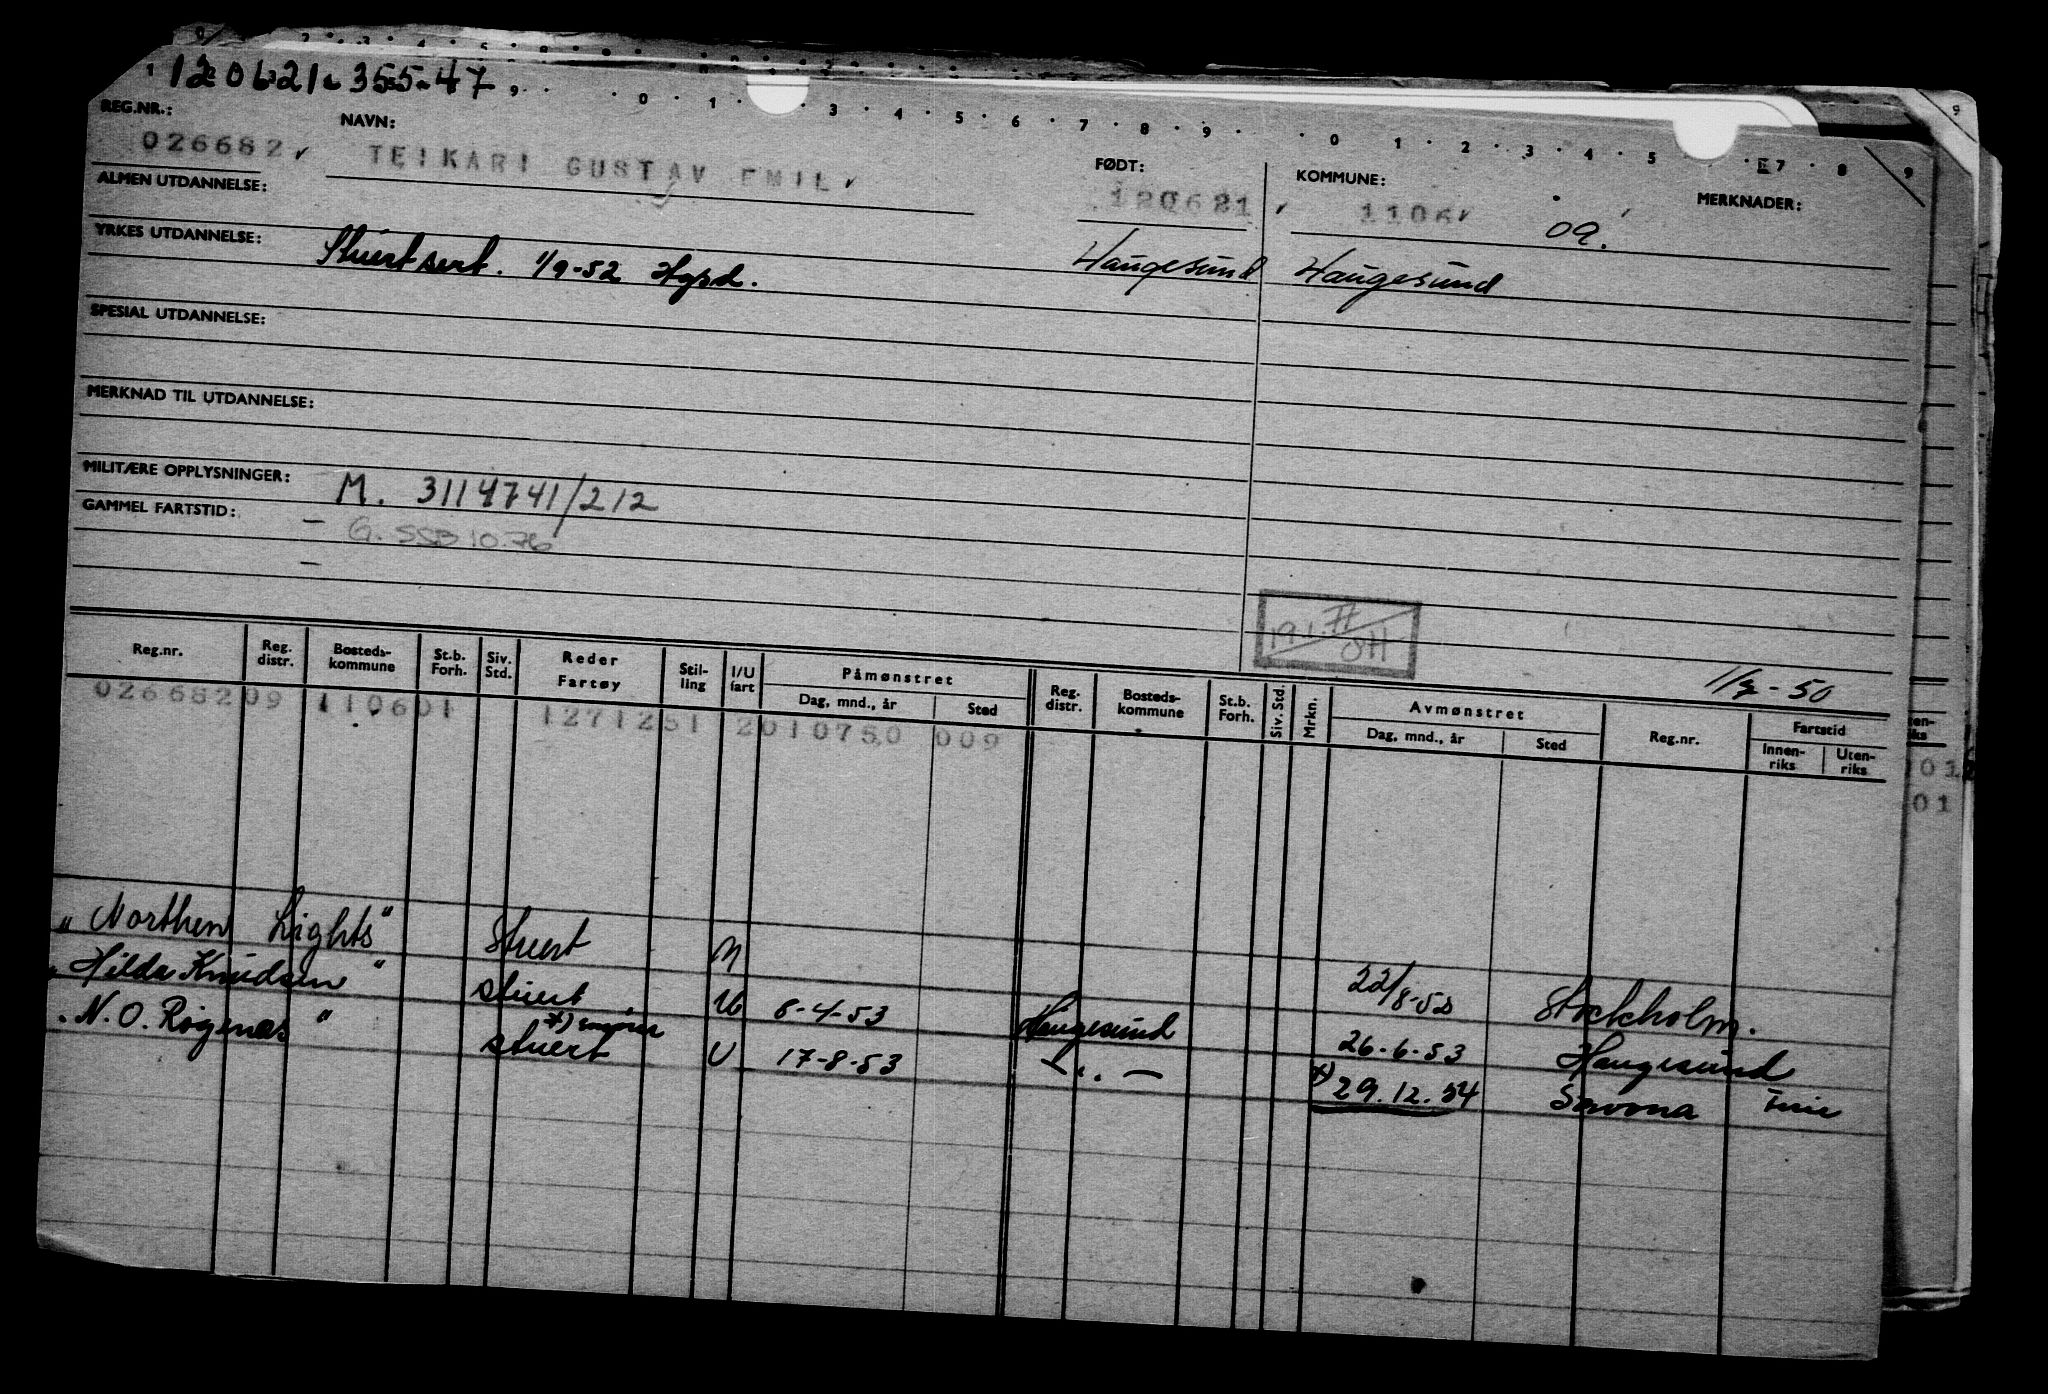 120621 35547
REG.NR.:
026682
NAVN:
TEIKARI GUSTAV EMIL
FØDT:
120621
KOMMUNE:
1106
09.
MERKNADER:
ALMEN UTDANNELSE:
YRKES UTDANNELSE:
Stuert sert. 1/9-52 Hgsd.
Haugesund
Haugesund
SPESIAL UTDANNELSE:
MERKNAD TIL UTDANNELSE:
MILITÆRE OPPLYSNINGER:
M. 3114741/212
GAMMEL FARTSTID:
G. SSB 10.76
19.1.77
OH
Reg.nr. Reg. distr. Bosteds-kommune St.b. Forh. Siv. Std. Reder Fartøy Stil-ling I/U fart Påmønstret Dag, mnd., år Sted Reg. distr. Bosteds-kommune St.b. Forh. Siv. Std. Mrkn. Avmønstret Dag, mnd., år Sted Reg.nr. Fartstid Innen-riks Uten-riks
026682 09 110601 1271251 2010750 009
"Northern Lights" Stuert 22/8-52 Stockholm.
"Hilda Knudsen" stuert U 8-4-53 Haugesund 26-6-53 Haugesund
"N.O. Røgenæs" stuert U 17-8-53 *) 29.12.54 Savona